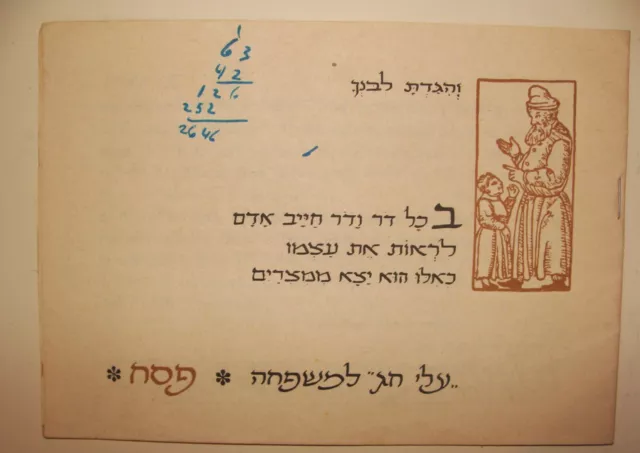 וְהִגַּדְתָּ לְבִנְךָ
בְּכָל דר וָדר חַיָיב אָדָם
לִרְאוֹת אֶת עַצְמוֹ
כְּאִלּוּ הוּא יָצָא מִמִצְרַיִם
..עלי חג״ למשפחה * פסח *
1
63
42
126
252
2646